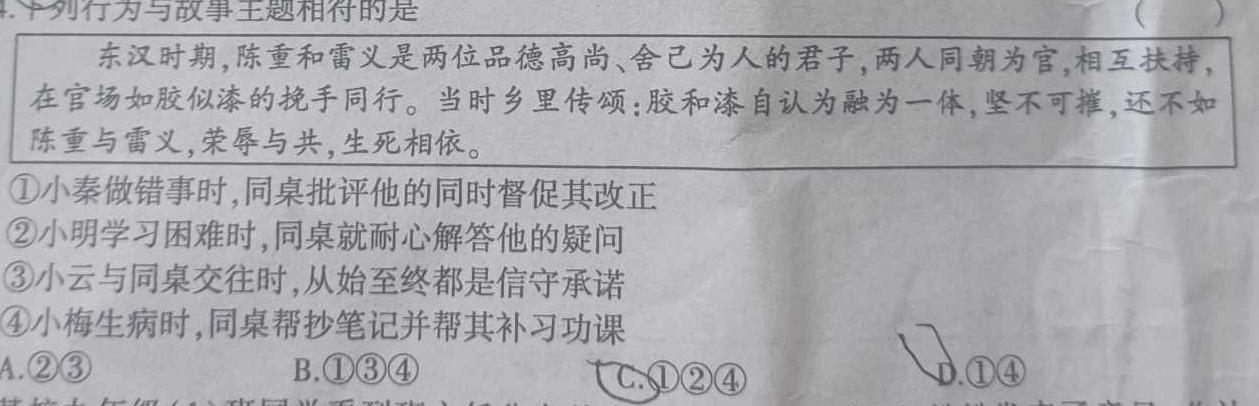 4.下列行为与故事主题相符的是 ( )
东汉时期,陈重和雷义是两位品德高尚、舍己为人的君子,两人同朝为官,相互扶持,
在官场如胶似漆的挽手同行。当时乡里传颂:胶和漆自认为融为一体,坚不可摧,还不如
陈重与雷义,荣辱与共,生死相依。
①小秦做错事时,同桌批评他的同时督促其改正
②小明学习困难时,同桌就耐心解答他的疑问
③小云与同桌交往时,从始至终都是信守承诺
④小梅生病时,同桌帮抄笔记并帮其补习功课
A.②③ B.①③④ C.①②④ D.①④